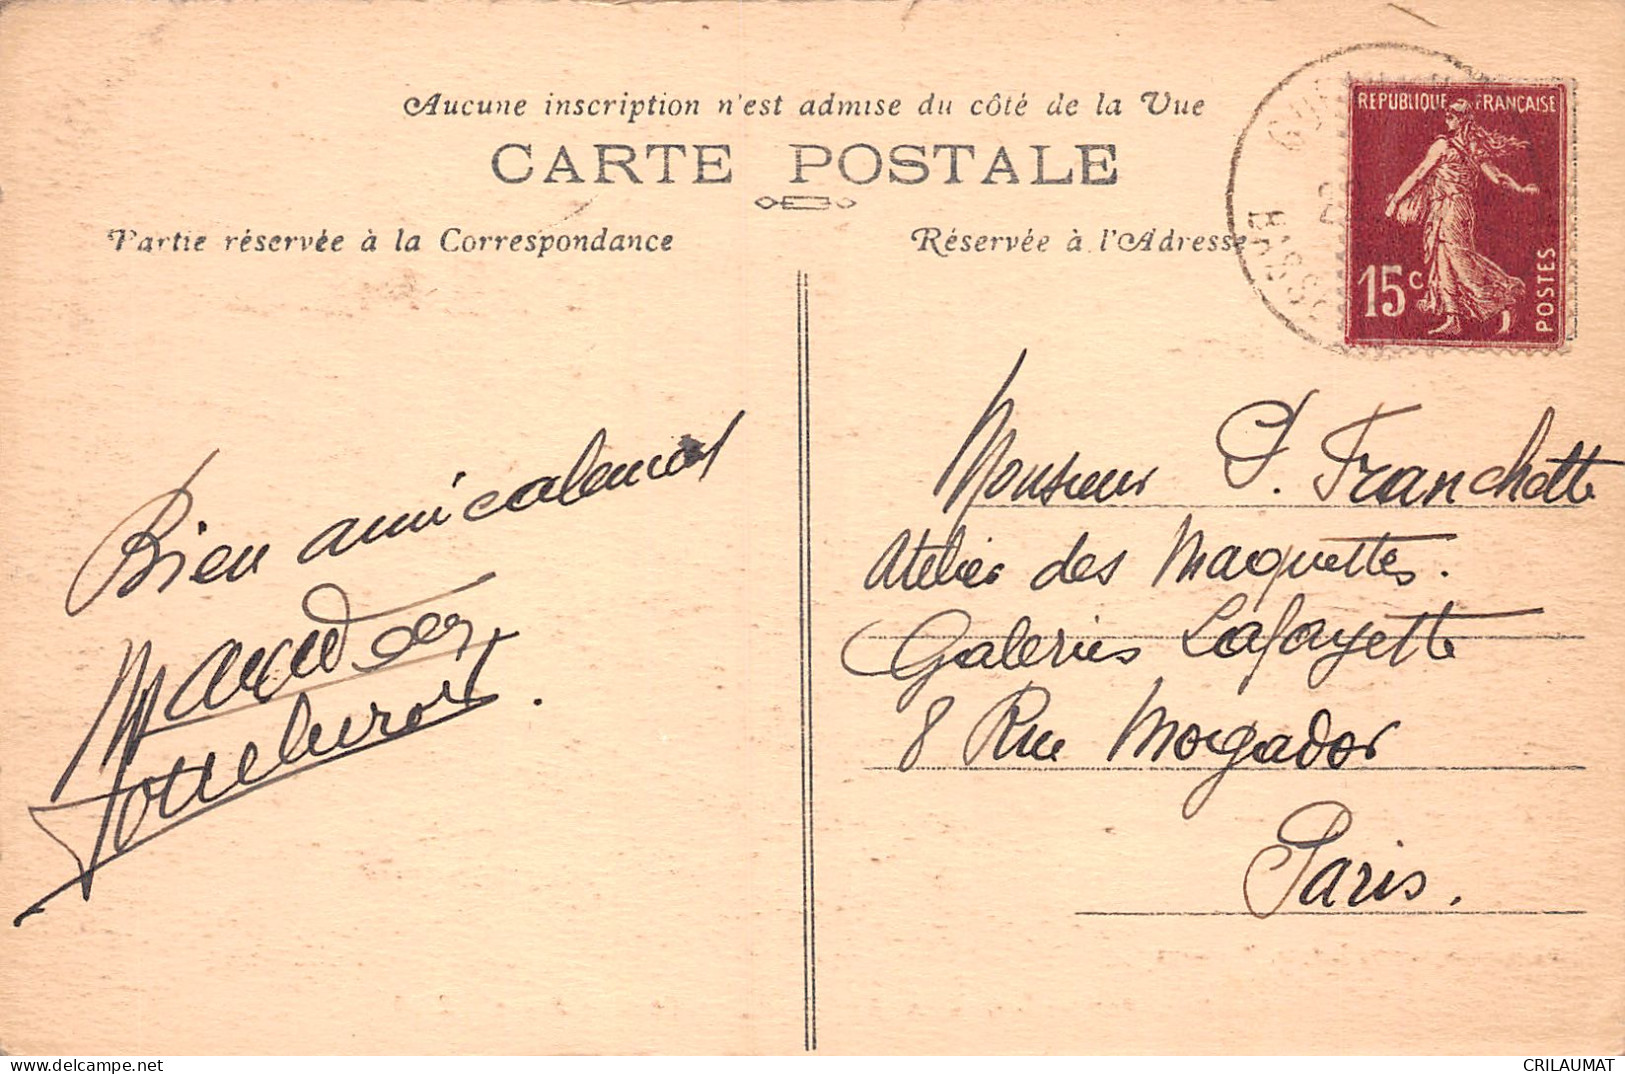 Aucune inscription n'est admise du côté de la Vue
CARTE POSTALE
Partie réservée à la Correspondance
Réservée à l'Adresse
REPUBLIQUE FRANÇAISE
15c
POSTES
Bien amicalement
Monsieur P. Franchette
Atelier des Maquettes.
Galeries Lafayette
8 Rue Mogador
Paris.
www.delcampe.net
CRILAUMAT